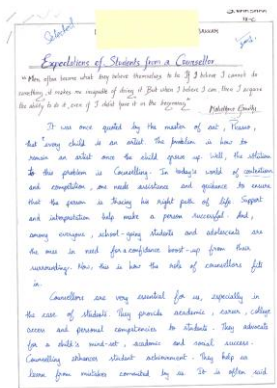 Selected
Expectations of Students from a Counsellor
"Men often become what they believe themselves to be. If I believe I cannot do
something, it makes me incapable of doing it. But when I believe I can, then I acquire
the ability to do it, even if I didn't have it in the beginning"
Mahatma Gandhi
It was once quoted by the master of art, Picasso,
that every child is an artist. The problem is how to
remain an artist once the child grows up. Well, the solution
to this problem is Counselling. In today's world of contention
and competition, one needs assistance and guidance to ensure
that the person is tracing his right path of life. Support
and interpretation help make a person successful. And,
among everyone, school-going students and adolescents are
the ones in need for a confidence boost-up from their
surrounding. Now, this is how the role of counsellors fit
in.
Counsellors are very essential for us, especially in
the case of students. They provide academic, career, college
access and personal competencies to students. They advocate
for a child's mind-set, academic and social success.
Counselling enhances student achievement. They help us
learn from mistakes committed by us. It is often said